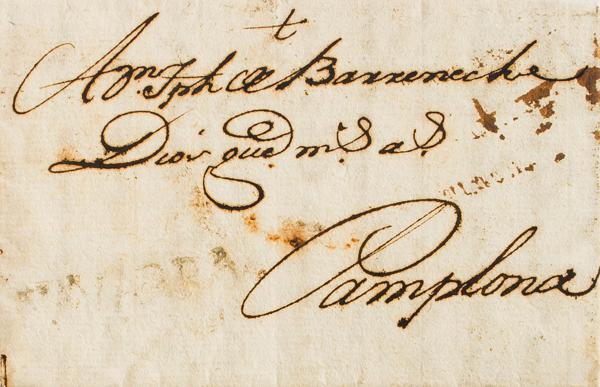 +
A Dn. Jph de Barreneche
Dios gue. ms. as.
Pamplona